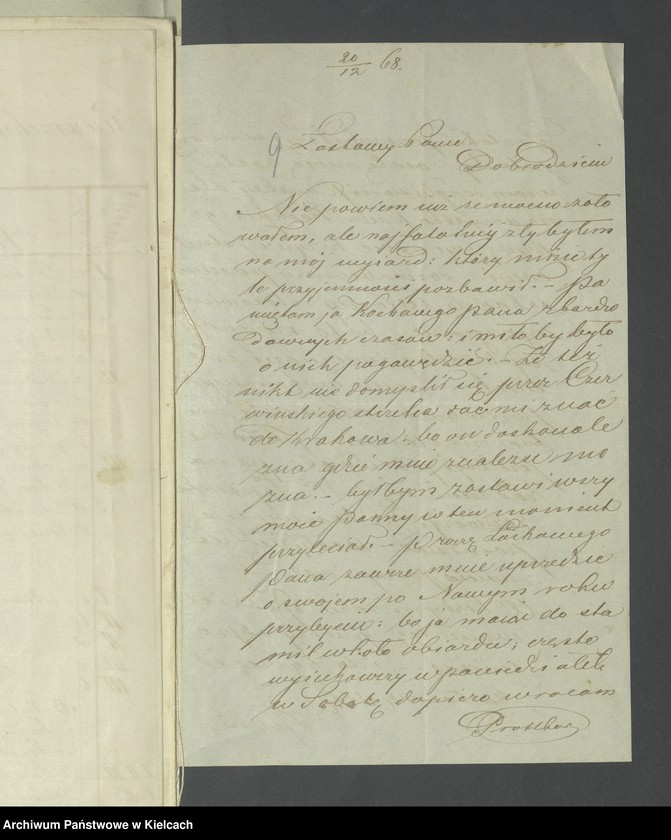 20/12 68.
9 Łaskawy Panie
Dobrodzieiu
Nie powiem już że mocno żało
wałem, ale najfatalniej zły byłem
na mój wyiazd: który mnie ty
le przyjemności pozbawił. – Pa
miętam ja Kochanego Pana z bardzo
dawnych czasów: i miło by było
o nich pogawędzić. – Że też
nikt nie domyślił się przez Czer
wińskiego strzelca dać mi znać
do Krakowa. bo on doskonale
zna gdzie mnie znaleźć mo
żna. – byłbym zostawiwszy
moie Panny w ten moment
przyleciał. – proszę Łaskawego
Pana zawsze mnie uprzedzić
o swojem po Nowym roku
przybyciu: bo ja maiąc do sta
mil wkoło obiazdu; często
wyiechawszy w poniedziałek
w Sobotę dopiero wracam
Archiwum Państwowe w Kielcach